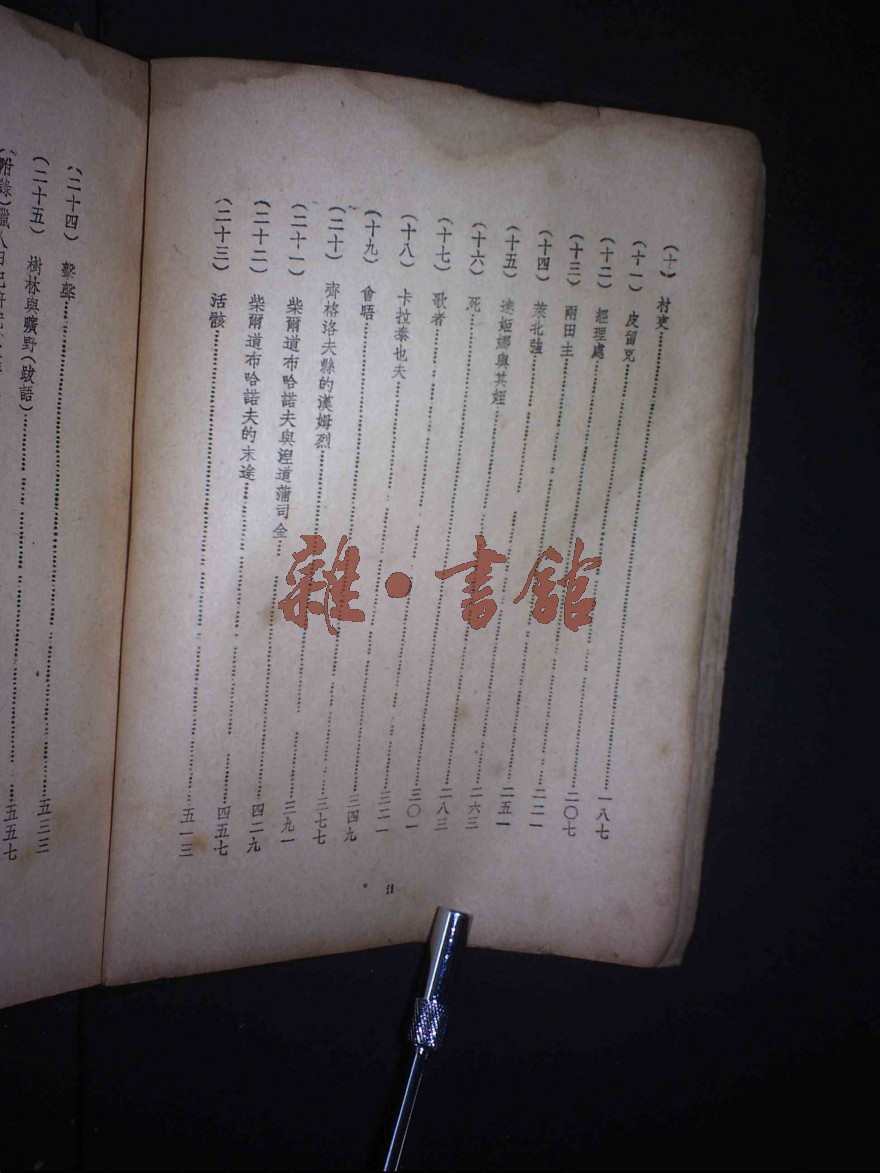 (十) 村吏……一八七
(十一) 皮留克……二〇七
(十二) 經理處……二二一
(十三) 兩田主……二五一
(十四) 萊北強……二六三
(十五) 達姬娜與其姪……二八三
(十六) 死……三〇一
(十七) 歌者……三二一
(十八) 卡拉泰也夫……三四九
(十九) 會晤……三七七
(二十) 齊格洛夫縣的漢姆烈……三九一
(二十一) 柴爾道布哈諾夫與涅道蒲司金……四二九
(二十二) 柴爾道布哈諾夫的末途……四五七
(二十三) 活骸……五一三
(二十四) 擊聲……五三三
(二十五) 樹林與曠野(跋語)……五五七
(附錄)獵人日記研究
雜·書館